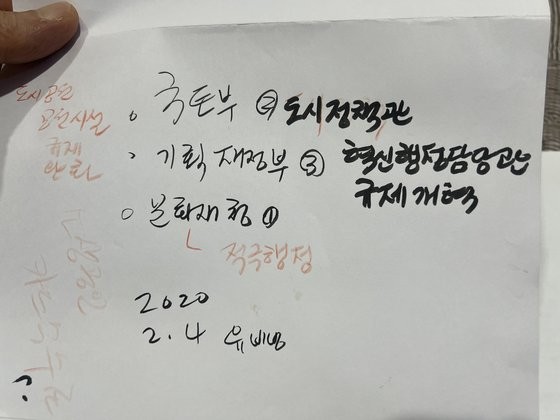 도시공원
공원시설
규제
완화
○ 국토부 ② 도시정책관
기획재정부 ③ 혁신행정담당관
규제개혁
○ 문화재청 ①
적극행정
2020
2.4